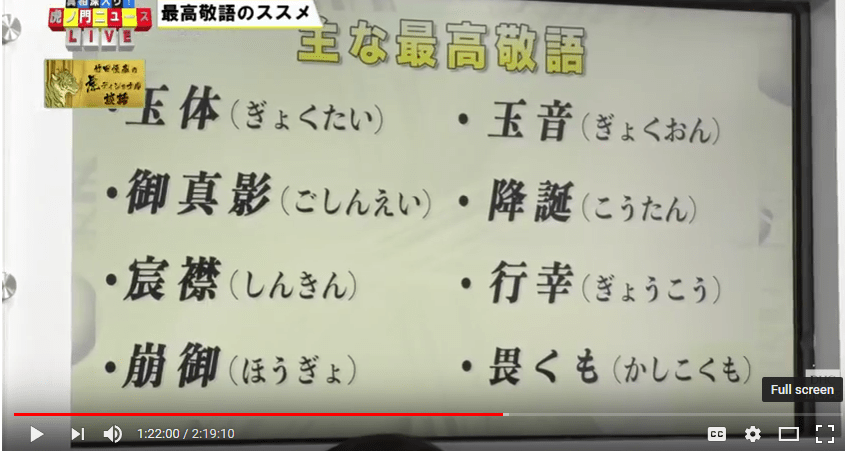 真相深入り!
虎ノ門ニュース
LIVE
最高敬語のススメ
竹田恒泰の
虎ディショナル
談話
主な最高敬語
・玉体（ぎょくたい）
・玉音（ぎょくおん）
・御真影（ごしんえい）
・降誕（こうたん）
・宸襟（しんきん）
・行幸（ぎょうこう）
・崩御（ほうぎょ）
・畏くも（かしこくも）
Full screen
1:22:00 / 2:19:10
CC